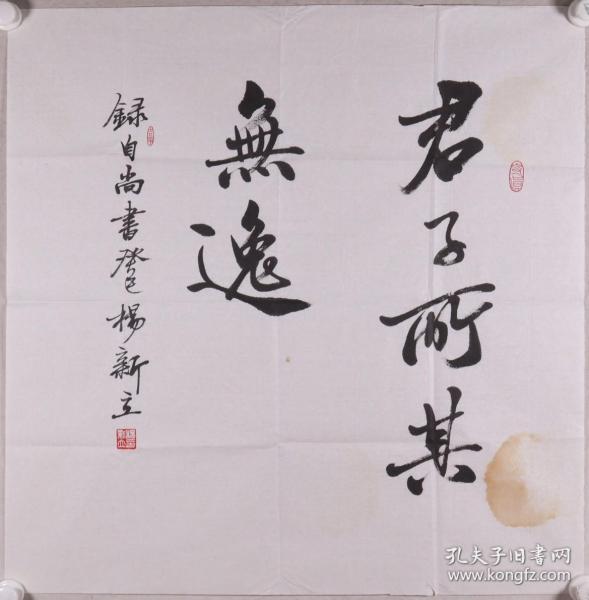 君子所其
無逸
録自尚書癸巳楊新立
孔夫子旧书网
www.kongfz.com